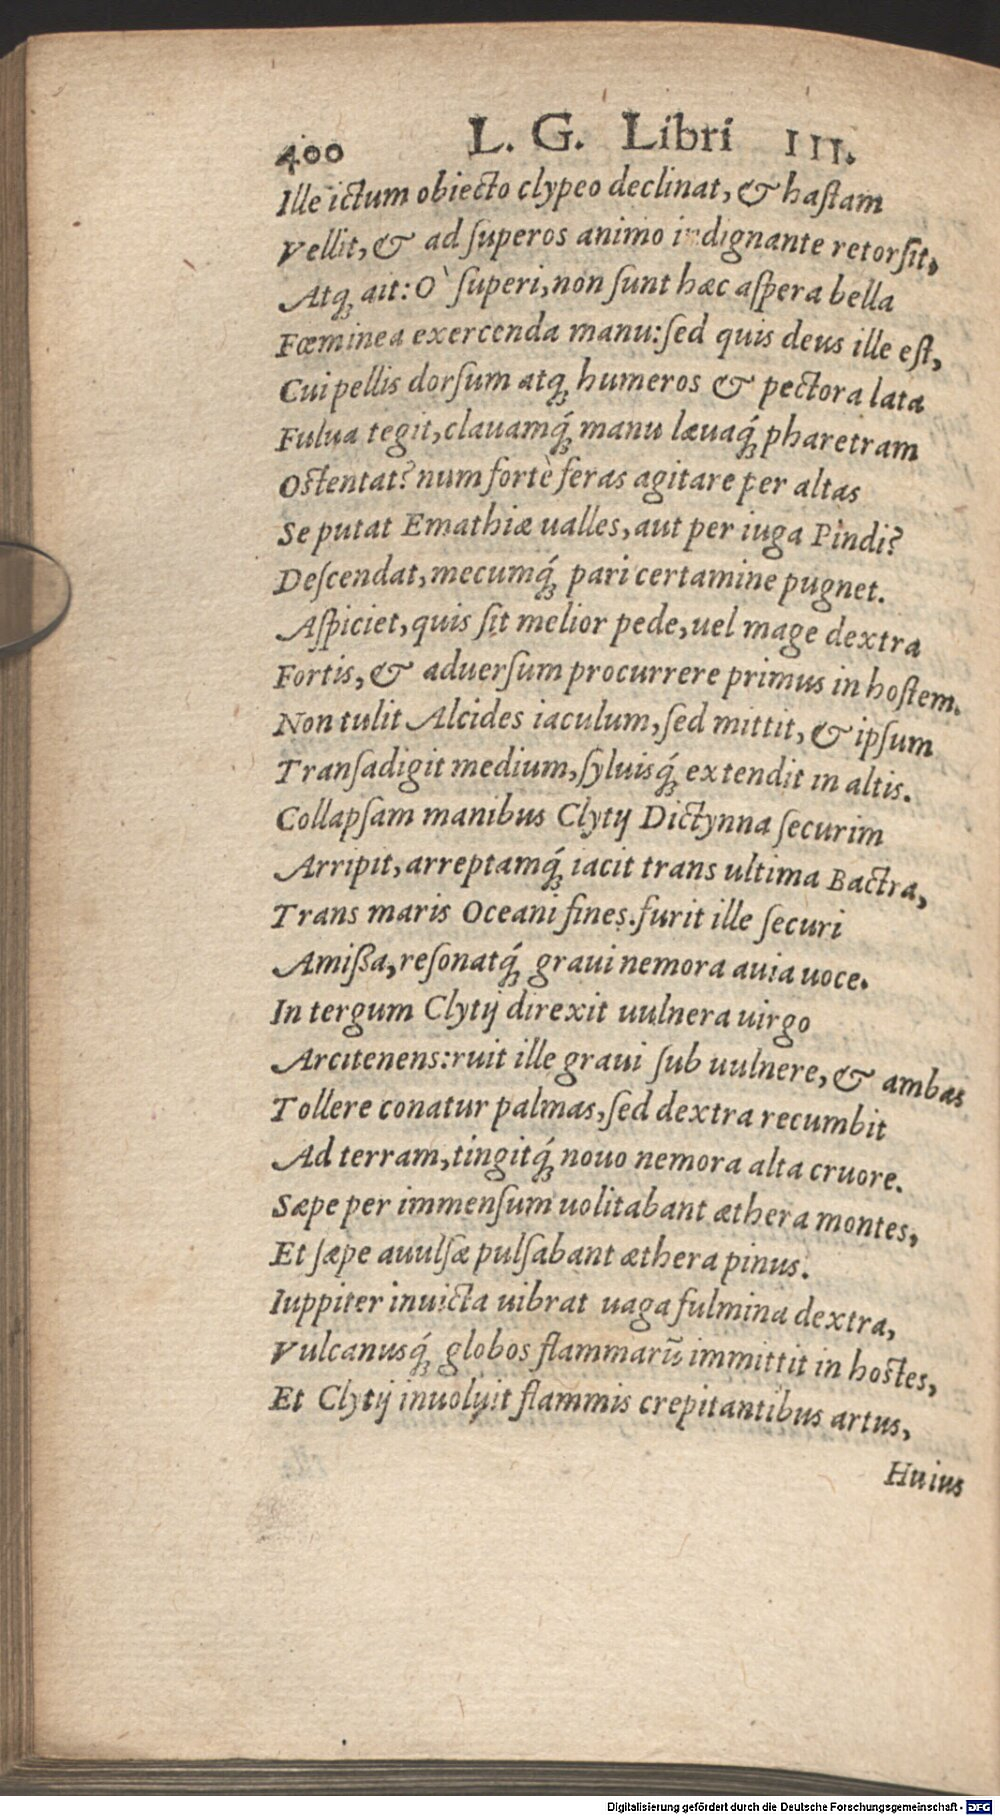 400 L. G. Libri III.
Ille ictum obiecto clypeo declinat, & haſtam
Vellit, & ad ſuperos animo indignante retorſit,
Atq; ait: O` ſuperi, non ſunt hæc aſpera bella
Fœminea exercenda manu: ſed quis deus ille eſt,
Cui pellis dorſum atq; humeros & pectora lata
Fulua tegit, clauamq́; manu læuaq́; pharetram
Oſtentat? num fortè feras agitare per altas
Se putat Emathiæ ualles, aut per iuga Pindi?
Deſcendat, mecumq́; pari certamine pugnet.
Aſpiciet, quis ſit melior pede, uel mage dextra
Fortis, & aduerſum procurrere primus in hoſtem.
Non tulit Alcides iaculum, ſed mittit, & ipſum
Tranſadigit medium, ſyluisq́; extendit in altis.
Collapſam manibus Clytij Dictynna ſecurim
Arripit, arreptamq́; iacit trans ultima Bactra,
Trans maris Oceani fines. furit ille ſecuri
Amißa, reſonatq́; graui nemora auia uoce.
In tergum Clytij direxit uulnera uirgo
Arcitenens: ruit ille graui ſub uulnere, & ambas
Tollere conatur palmas, ſed dextra recumbit
Ad terram, tingitq́; nouo nemora alta cruore.
Sæpe per immenſum uolitabant æthera montes,
Et ſæpe auulſæ pulſabant æthera pinus.
Iuppiter inuicta uibrat uaga fulmina dextra,
Vulcanusq́; globos flammarū immittit in hoſtes,
Et Clytij inuoluit flammis crepitantibus artus,
Huius
Digitalisierung gefördert durch die Deutsche Forschungsgemeinschaft - DFG